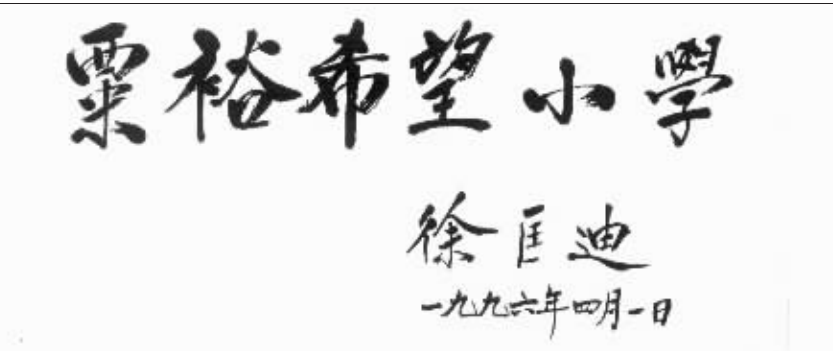 粟裕希望小學
徐匡迪
一九九六年四月一日